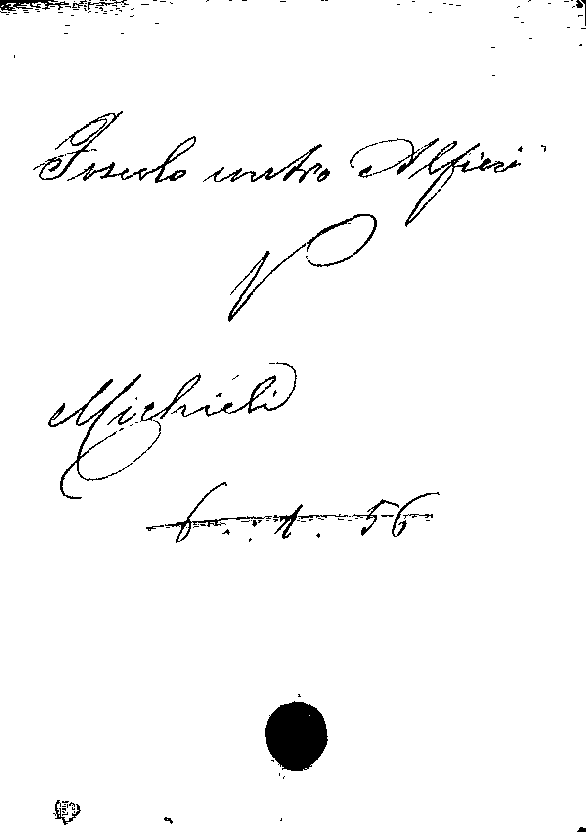 Foscolo contro Alfieri
V
Michieli
6 . 1 . 56